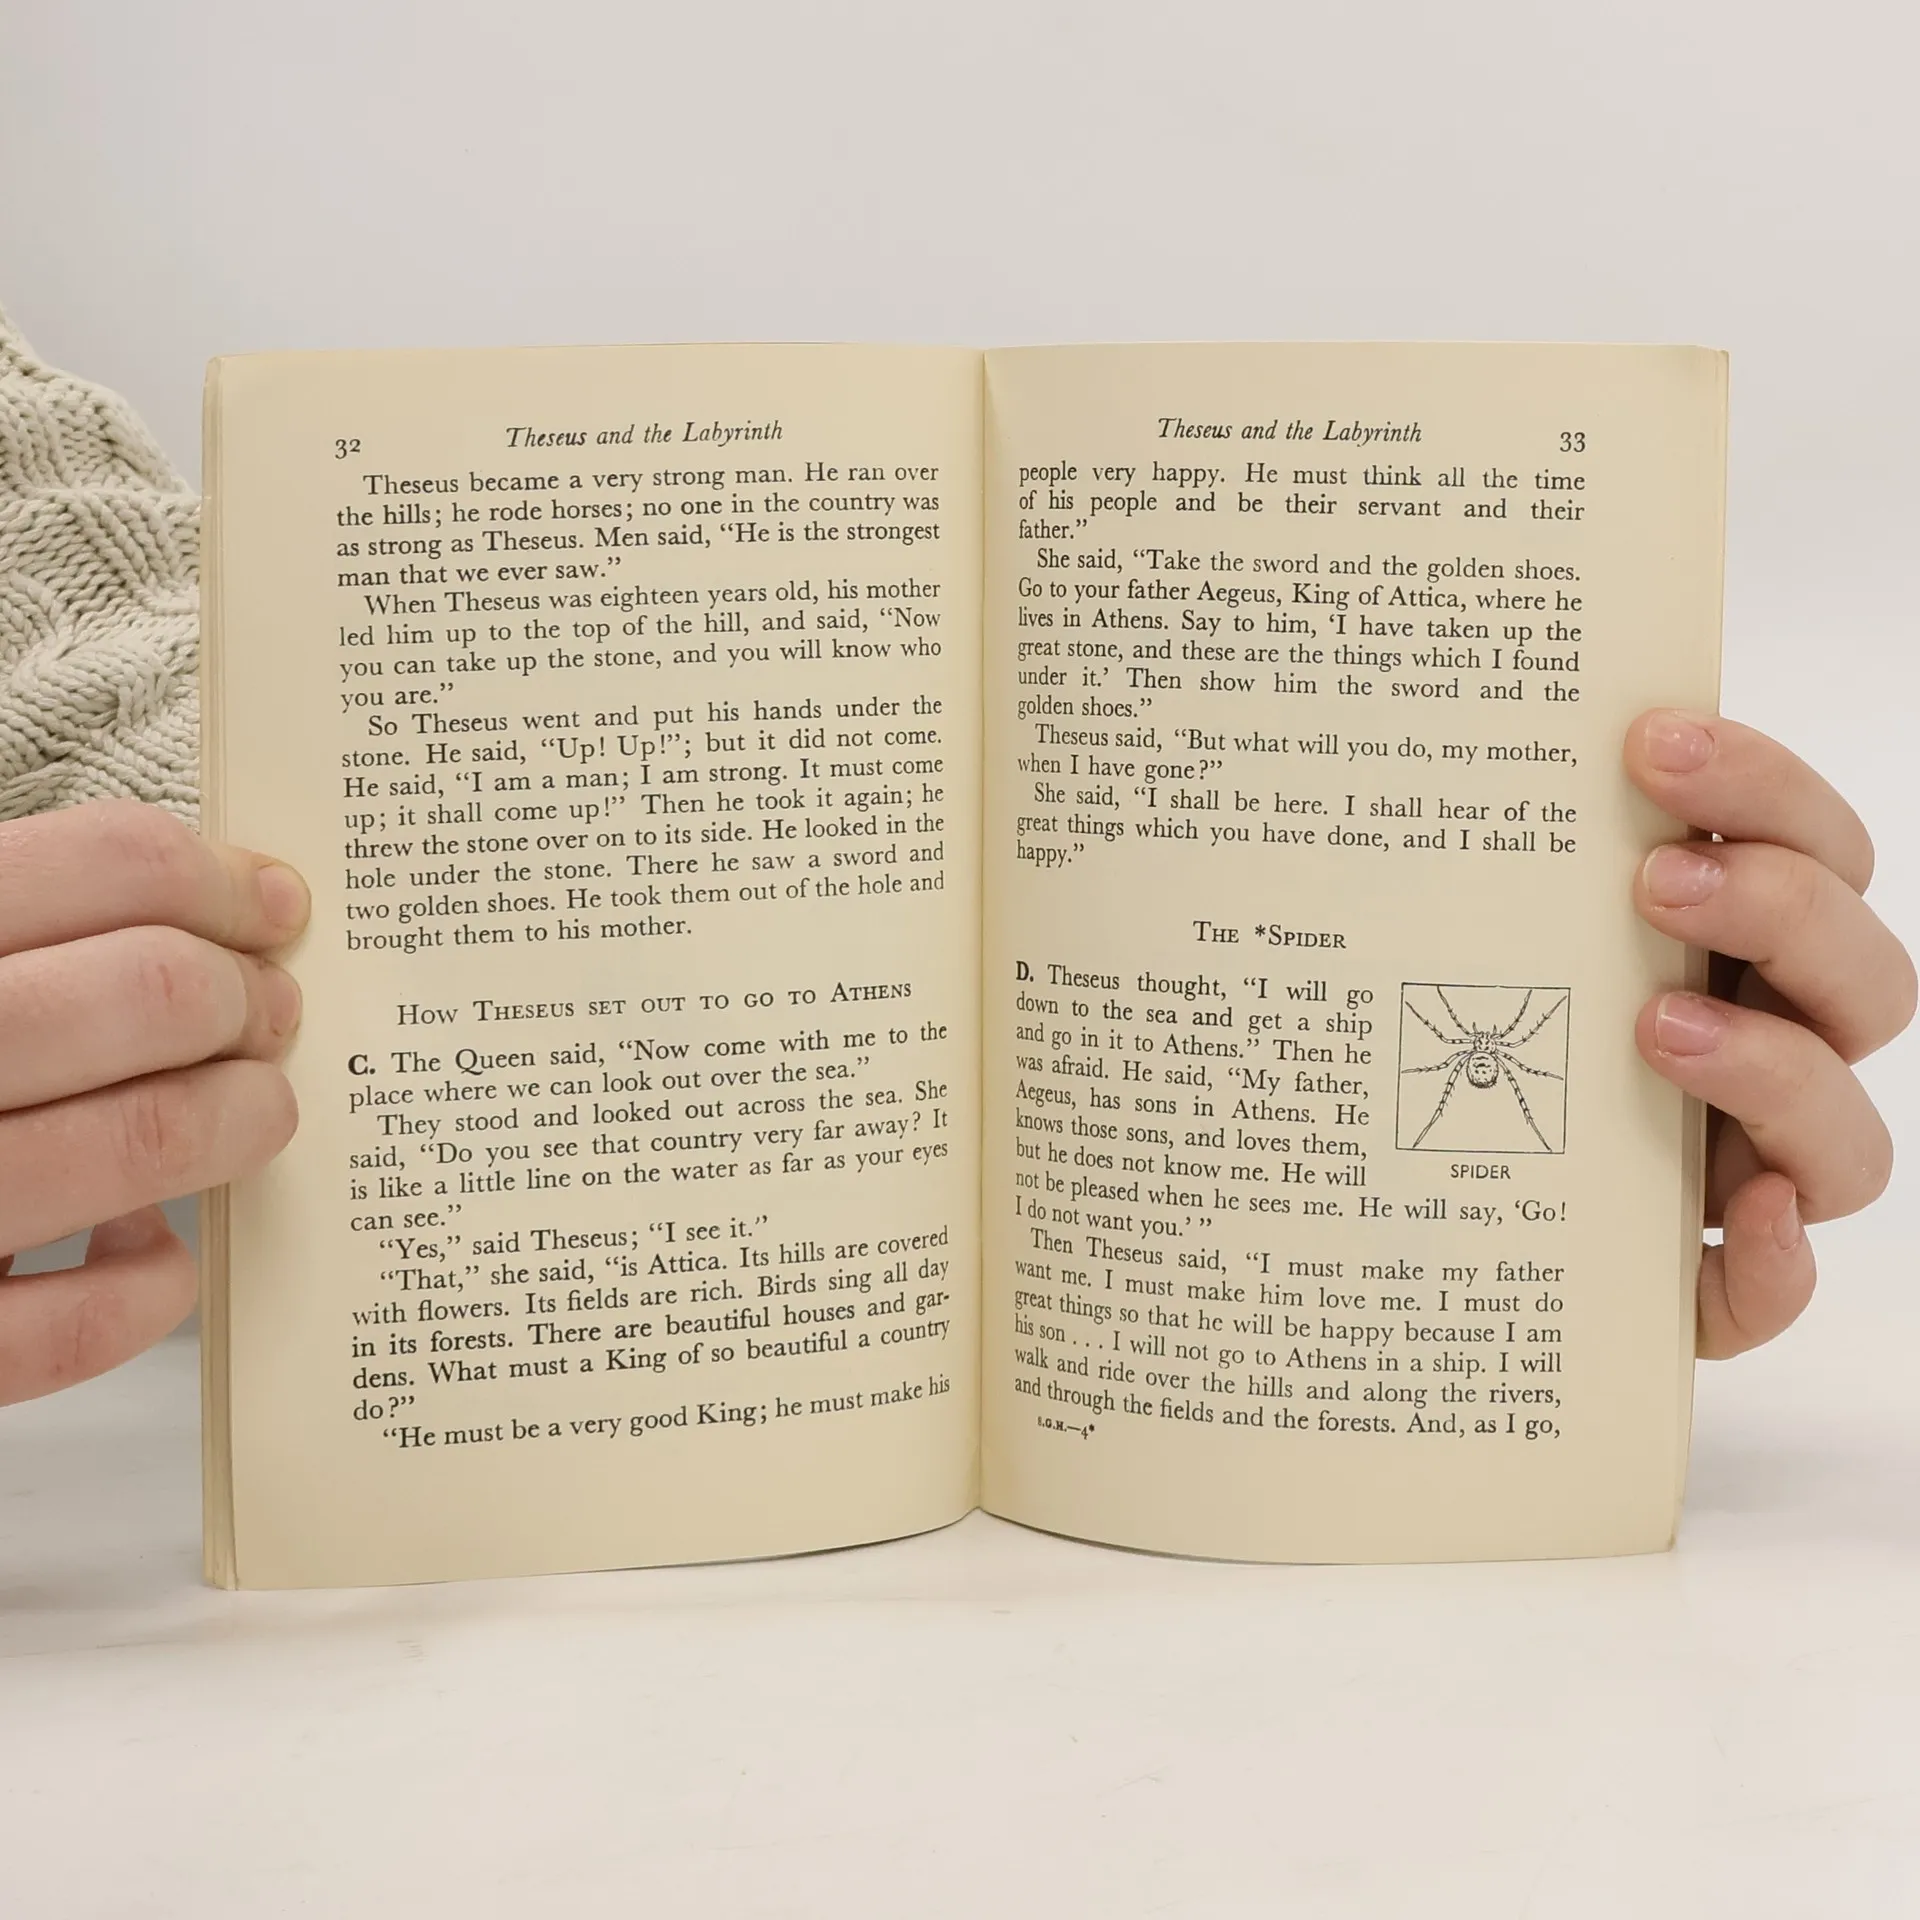 32
Theseus and the Labyrinth
Theseus became a very strong man. He ran over
the hills; he rode horses; no one in the country was
as strong as Theseus. Men said, “He is the strongest
man that we ever saw.”
When Theseus was eighteen years old, his mother
led him up to the top of the hill, and said, “Now
you can take up the stone, and you will know who
you are.”
So Theseus went and put his hands under the
stone. He said, “Up! Up!”; but it did not come.
He said, “I am a man; I am strong. It must come
up; it shall come up!” Then he took it again; he
threw the stone over on to its side. He looked in the
hole under the stone. There he saw a sword and
two golden shoes. He took them out of the hole and
brought them to his mother.
How Theseus set out to go to Athens
C. The Queen said, “Now come with me to the
place where we can look out over the sea.”
They stood and looked out across the sea. She
said, “Do you see that country very far away? It
is like a little line on the water as far as your eyes
can see.”
“Yes,” said Theseus; “I see it.”
“That,” she said, “is Attica. Its hills are covered
with flowers. Its fields are rich. Birds sing all day
in its forests. There are beautiful houses and gar-
dens. What must a King of so beautiful a country
do?”
“He must be a very good King; he must make his
Theseus and the Labyrinth
33
people very happy. He must think all the time
of his people and be their servant and their
father.”
She said, “Take the sword and the golden shoes.
Go to your father Aegeus, King of Attica, where he
lives in Athens. Say to him, ‘I have taken up the
great stone, and these are the things which I found
under it.’ Then show him the sword and the
golden shoes.”
Theseus said, “But what will you do, my mother,
when I have gone?”
She said, “I shall be here. I shall hear of the
great things which you have done, and I shall be
happy.”
The *Spider
D. Theseus thought, “I will go
down to the sea and get a ship
and go in it to Athens.” Then he
was afraid. He said, “My father,
Aegeus, has sons in Athens. He
knows those sons, and loves them,
but he does not know me. He will
not be pleased when he sees me. He will say, ‘Go!
I do not want you.’ ”
SPIDER
Then Theseus said, “I must make my father
want me. I must make him love me. I must do
great things so that he will be happy because I am
his son . . . I will not go to Athens in a ship. I will
walk and ride over the hills and along the rivers,
and through the fields and the forests. And, as I go,
S.G.H.—4*